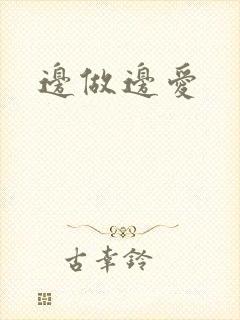 邊做邊愛
古幸鈴